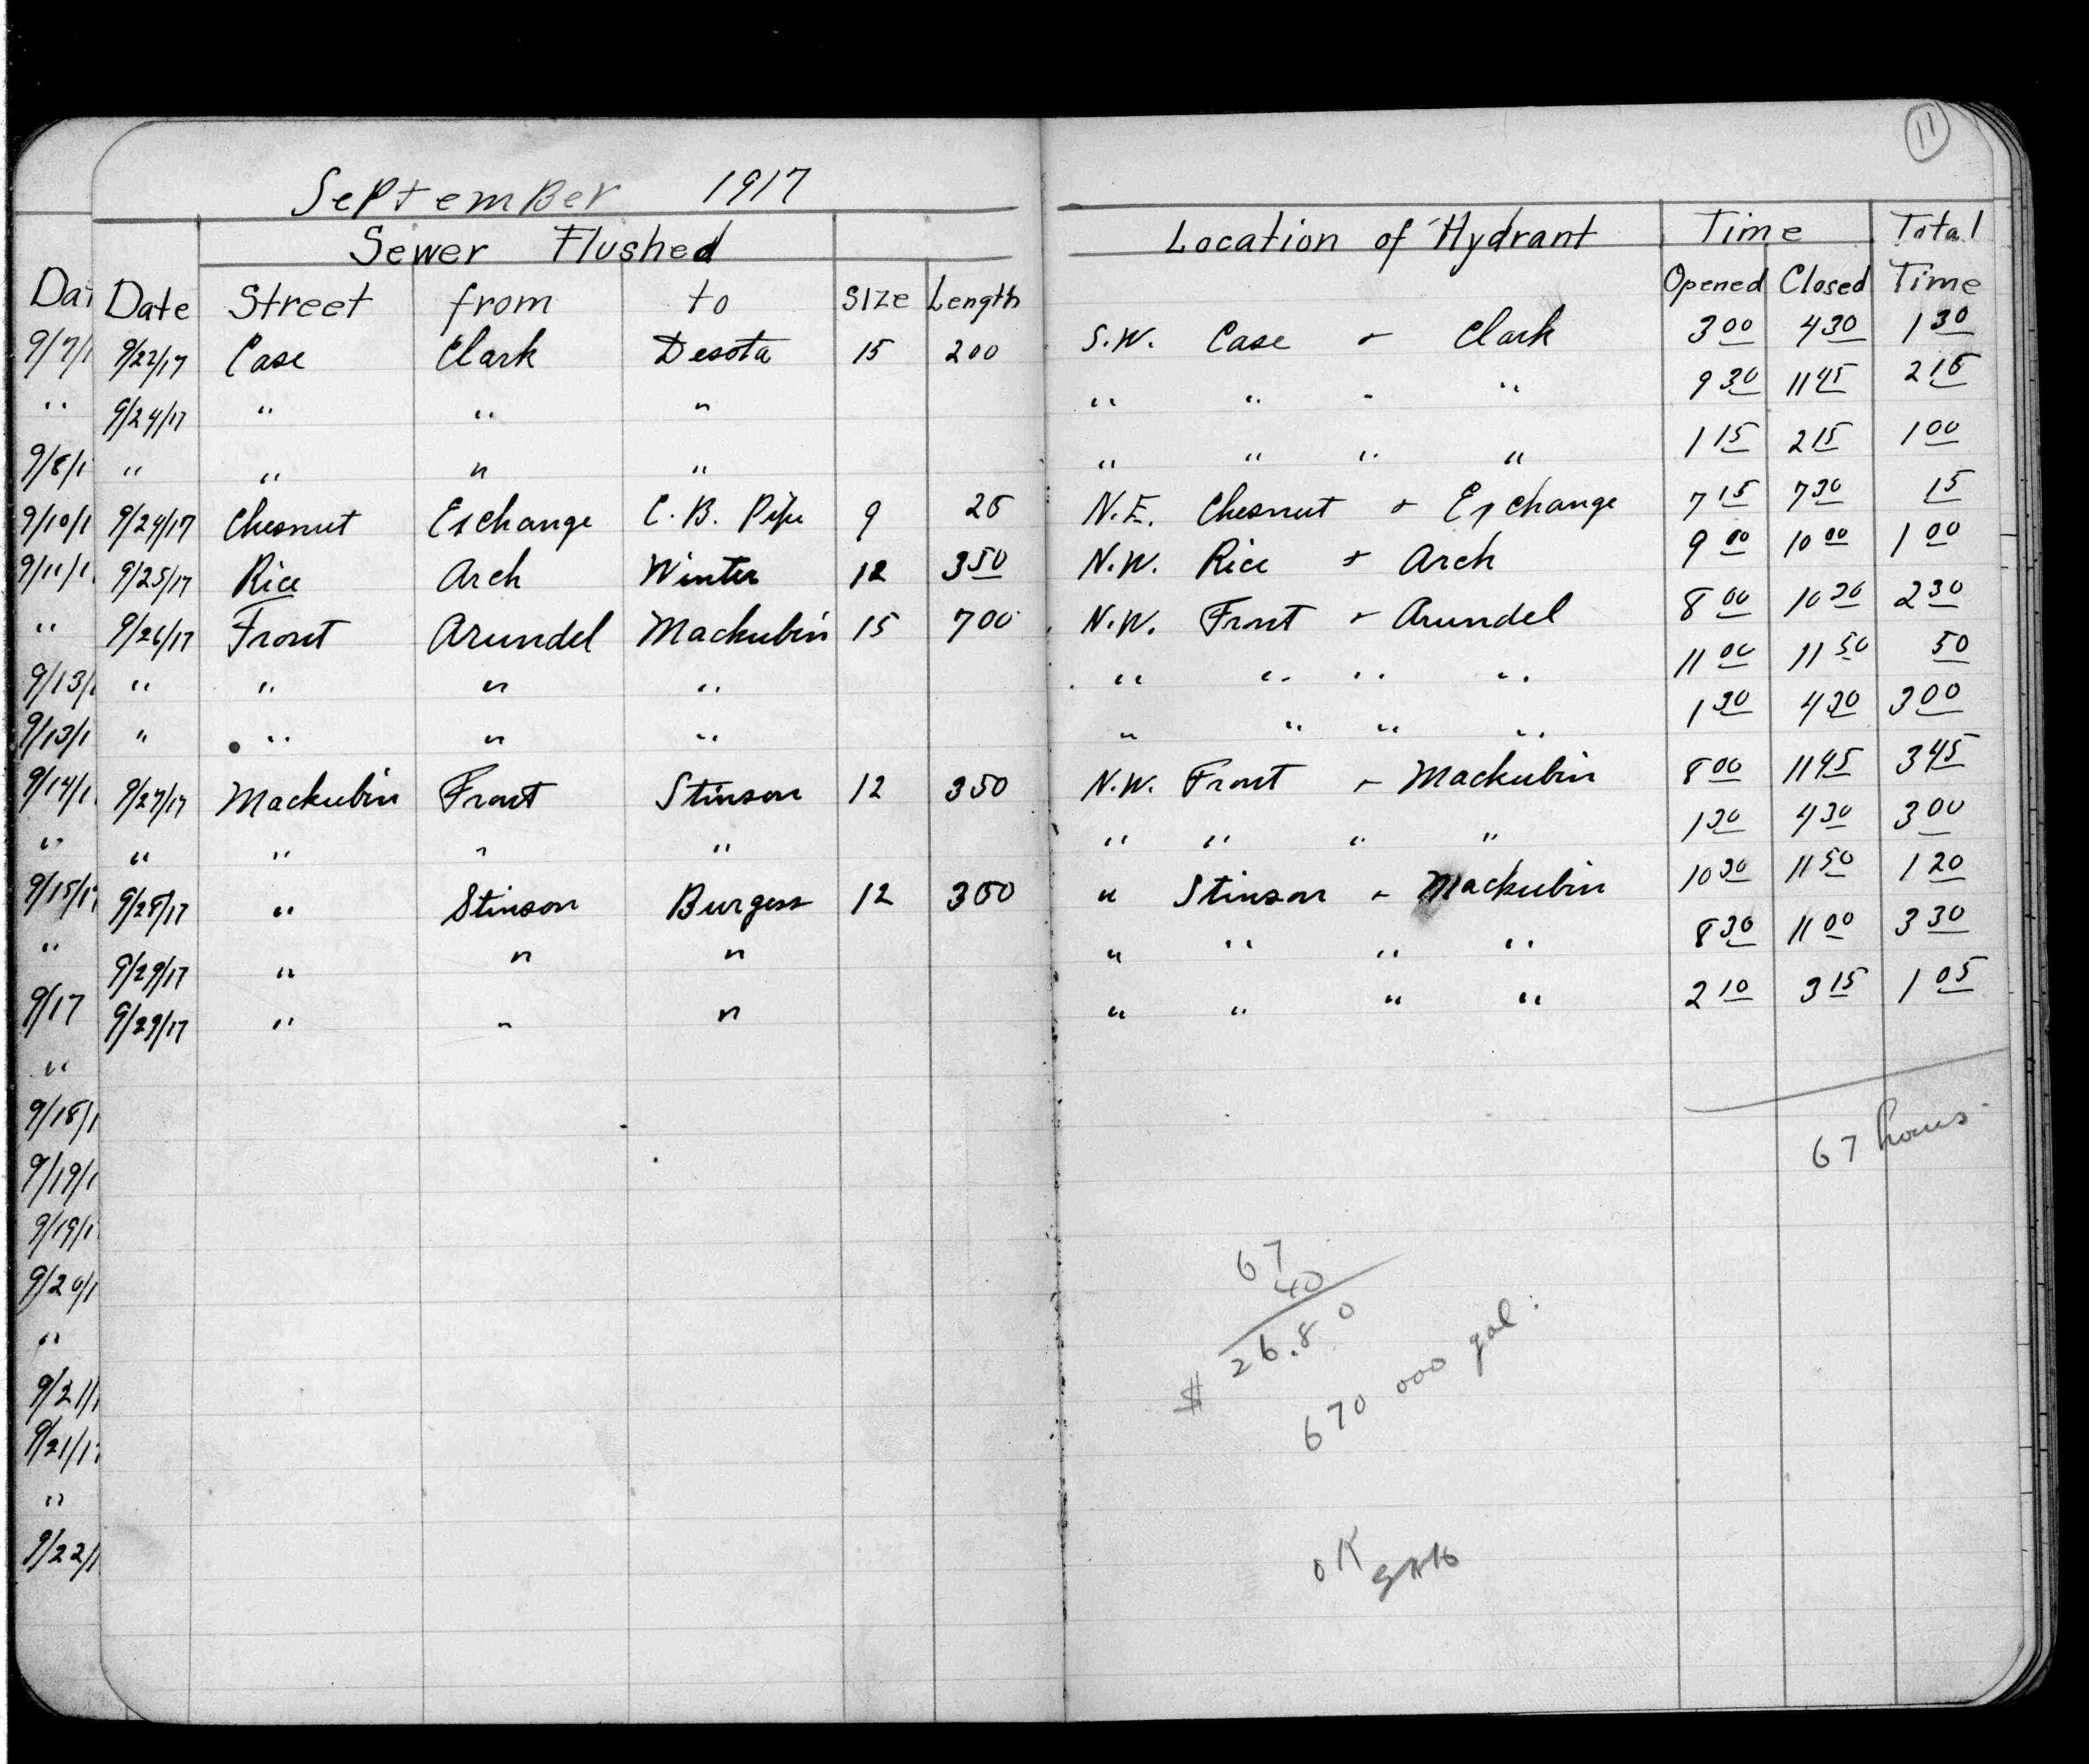 11
September 1917
Sewer Flushed Location of Hydrant Time Total
Dat Date Street from to Size Length Opened Closed Time
9/7/1 9/22/17 Case Clark Desota 15 200 S.W. Case + Clark 3 00 4 30 1 30
" 9/24/17 " " " " " " " 9 30 11 45 2 15
9/8/1 " " " " " " " " 1 15 2 15 1 00
9/10/1 9/24/17 Chesnut Exchange C.B. Pipe 9 25 N.E. Chesnut + Exchange 7 15 7 30 15
9/11/1 9/25/17 Rice Arch Winter 12 350 N.W. Rice + Arch 9 00 10 00 1 00
" 9/26/17 Front Arundel Mackubin 15 700 N.W. Front + Arundel 8 00 10 30 2 30
9/13/1 " " " " " " " " 11 00 11 50 50
9/13/1 " " " " " " " " 1 30 4 30 3 00
9/14/1 9/27/17 Mackubin Front Stinson 12 350 N.W. Front + Mackubin 8 00 11 45 3 45
" " " " " " " " " 1 30 4 30 3 00
9/15/17 9/28/17 " Stinson Burgess 12 300 " Stinson + Mackubin 10 30 11 50 1 20
" 9/29/17 " " " " " " " 8 30 11 00 3 30
9/17 9/29/17 " " " " " " " 2 10 3 15 1 05
"
9/18/1
67 hours
9/19/1
9/19/1
67
9/20/1
40
"
$ 26.80
9/21/1
670 000 gal.
9/21/17
"
9/22/1
OK